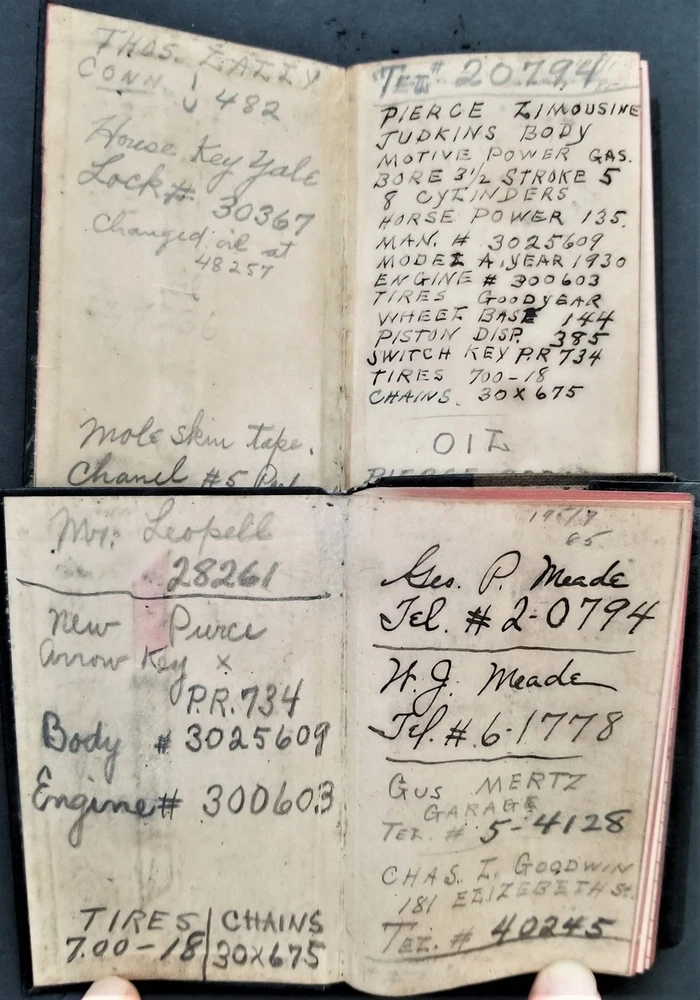 THOS. LALLY
CONN. 482
House Key Yale
Lock # 30367
Changed oil at
48257
Mole skin tape.
Chanel #5
TEL# 20794
PIERCE LIMOUSINE
JUDKINS BODY
MOTIVE POWER GAS.
BORE 3 1/2 STROKE 5
8 CYLINDERS
HORSE POWER 135.
MAN. # 3025609
MODEL A. YEAR 1930
ENGINE # 300603
TIRES GOODYEAR
WHEEL BASE 144
PISTON DISP. 385
SWITCH KEY P.R 734
TIRES 700-18
CHAINS. 30X675
OIL
Mr. Leopell
28261
New Pierce
Arrow Key X
P.R.734
Body # 3025609
Engine # 300603
TIRES | CHAINS
7.00-18 | 30X675
65
Geo. P. Meade
Tel. # 2-0794
H. J. Meade
Tel. # 6-1778
GUS MERTZ
GARAGE
TEL. # 5-4128
CHAS. L. GOODWIN
181 ELIZEBETH St.
TEL. # 40245